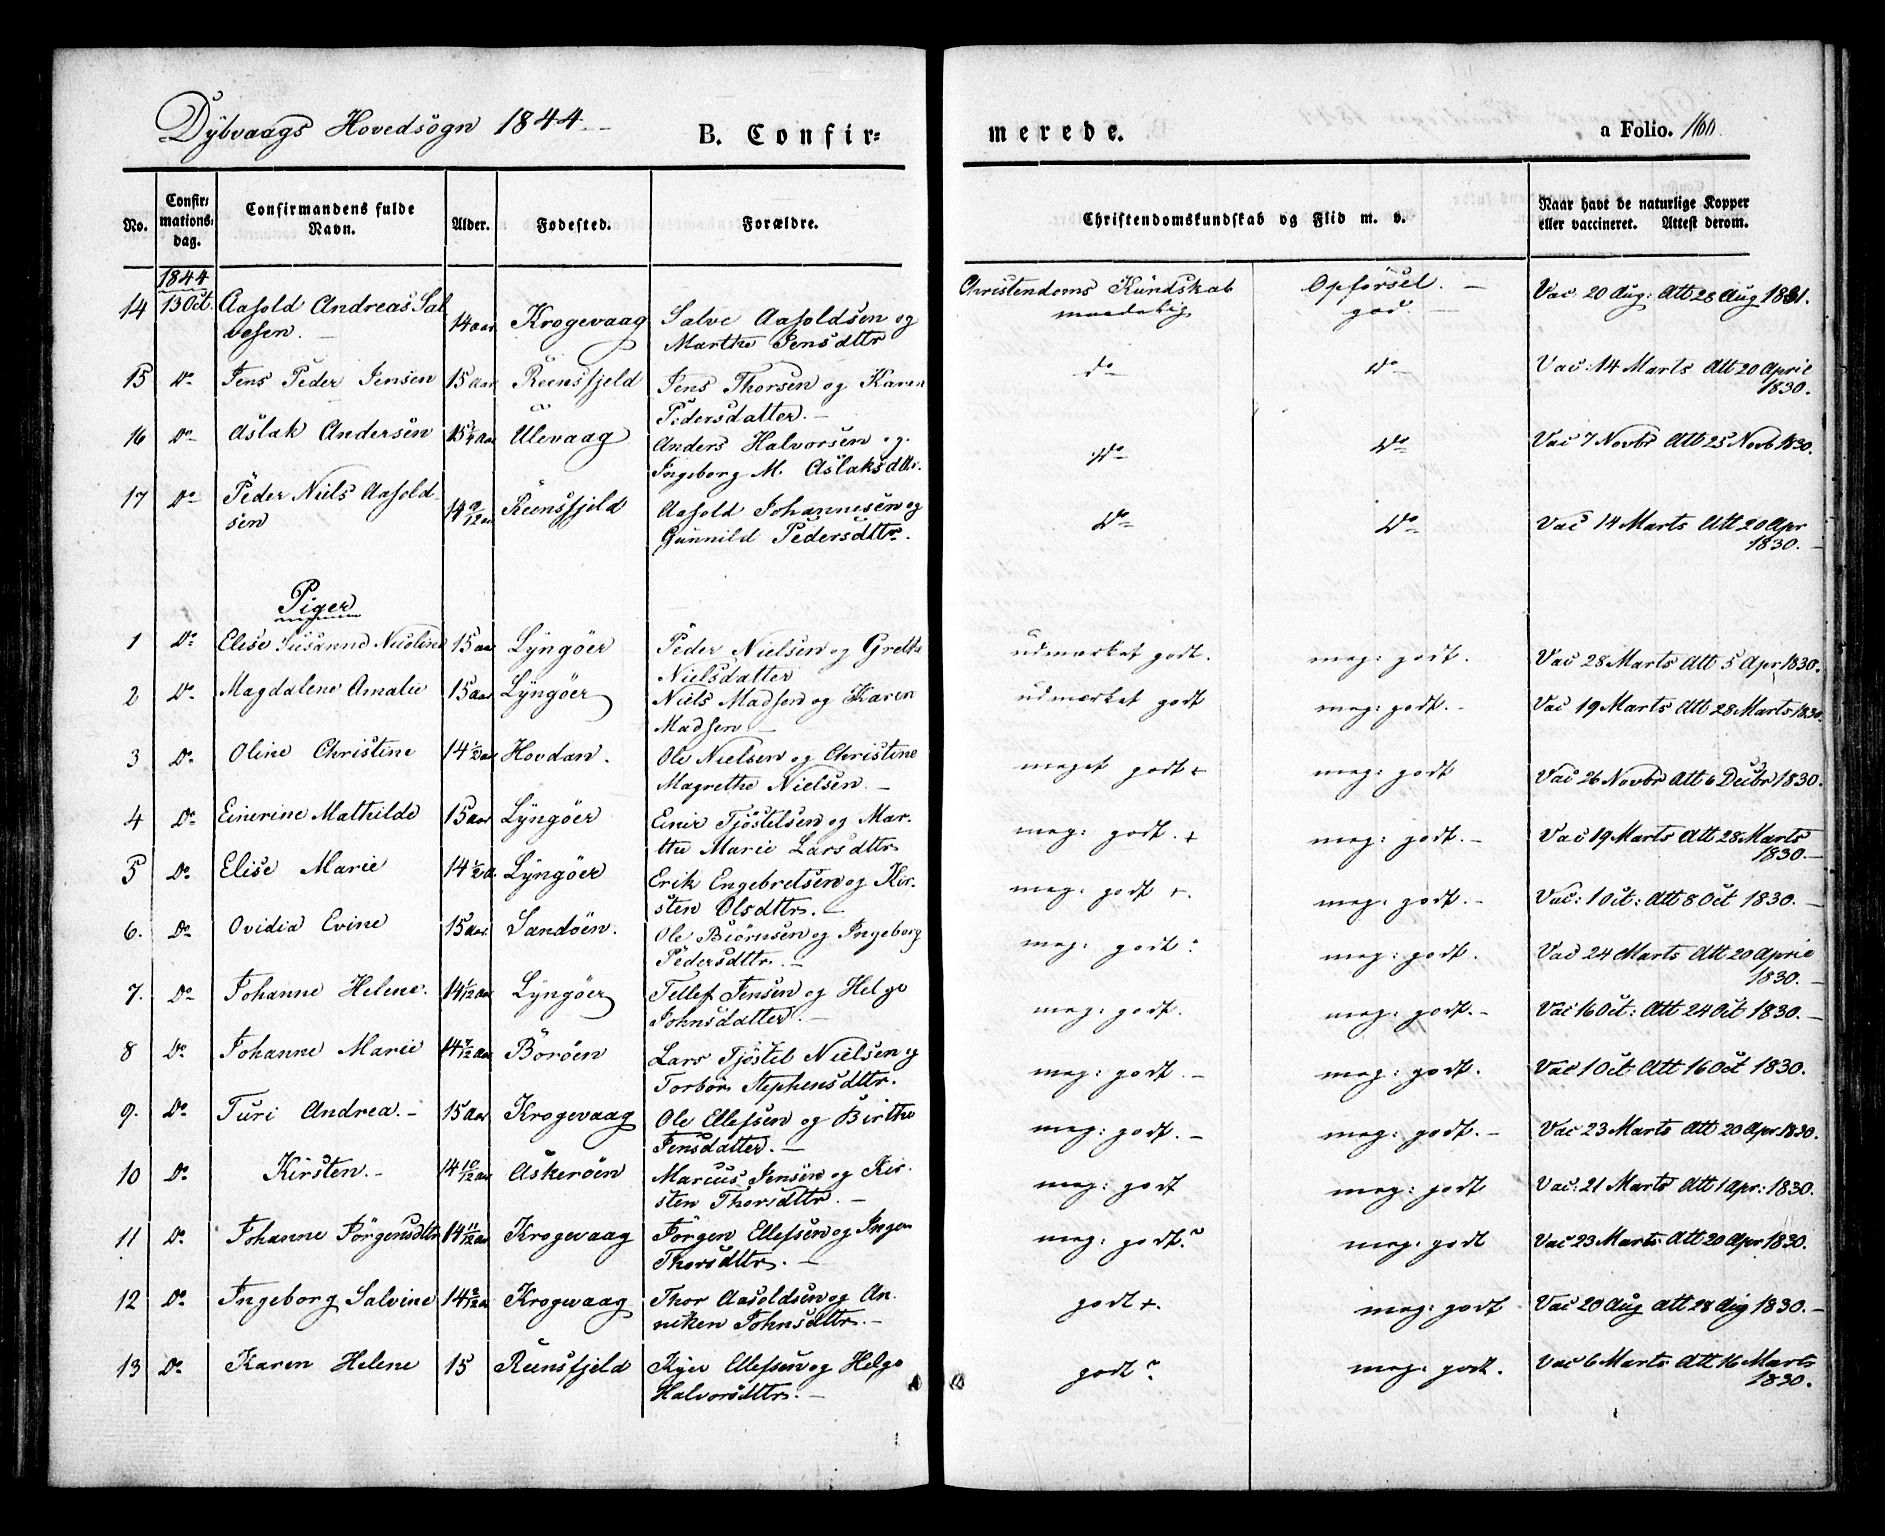 Dybvaags Hovedsogn 1844.
B. Confir=
merede.
a Folio. 160.
No.
Confir=
mations=
dag.
Confirmandens fulde
Navn.
Alder.
Fødested.
Forældre.
Christendomskundskab og Flid m. v.
Naar havt de naturlige Kopper
eller vaccineret. Attest derom.
1844
14 13 Oct. Aasold Andreas Sal
vesen. 14 aar Krogevaag Salve Aasoldsen og
Marthe Jensdttr
Christendoms Kundskab Opførsel.
maadelig god. Vac 20 Aug: Att 28 Aug 1831.
15 Do Jens Peder Jensen 15 aar Reensfjeld Jens Thorsen og Karen
Pedersdatter. do do Vac: 14 Marts Att 20 April
1830.
16 Do Aslak Andersen 15 1/4 aar Ulevaag Anders Halvorsen og
Ingeborg M. Aslaksdttr. do do Vac 7 Novbr Att 25 Novb 1830.
17 Do Peder Niels Aasold-
sen 14 9/12 aar Reensfjeld Aasold Johannesen og
Gunnild Pedersdttr. do do Vac 14 Marts Att 20 Apr
1830.
Piger
1 Do Elise Susanne Nicoline 15 aar Lyngöer Peder Nielsen og Grethe
Nielsdatter udmærket godt. meg: godt. Vac 28 Marts Att 5 Apr 1830.
2 Do Magdalene Amalie 15 aar Lyngöer Niels Madsen og Karen
Madsen udmærket godt meg: godt. Vac 19 Marts Att 28 Marts 1830.
3 Do Oline Christine 14 1/2 aar Hovdan. Ole Nielsen og Christine
Magrethe Nielsen. meget godt + meg: godt Vac 26 Novbr Att 6 Decbr 1830.
4 Do Einerine Mathilde 15 aar Lyngöer Einer Tjöstelsen og Mar-
the Marie Larsdttr meg: godt. + meg: godt. Vac 19 Marts Att 28 Marts
1830.
5 Do Elise Marie 14 1/2 a. Lyngöer Erik Engebretsen og Kir-
sten Olsdttr. meg: godt +. meg: godt. Vac: 1 Oct: Att 8 Oct 1830.
6. Do Ovidia Evine 15 aar. Sandöen. Ole Biörnsen og Ingeborg
Pedersdttr. meg: godt: meg: godt. Vac 24 Marts Att 20 April
1830.
7. Do Johanne Helene. 14 1/12 aar Lyngöer Tellef Jensen og Helge
Johnsdatter. meg: godt. meg: godt. Vac 16 Oct: Att 24 Oct 1830.
8 Do Johanne Marie 14 7/12 aar Boröen Lars Tjöstel Nielsen og
Torbor Stephensdttr. meg: godt. meg: godt. Vac 1 Oct Att 16 Oct 1830.
9. Do Turi Andrea. 15 Aar Krogevaag Ole Ellefsen og Birthe
Jensdatter. meg: godt. meg: godt. Vac 23 Marts Att 20 Apr 1830.
10 Do Kirsten. 14 10/12 aar Askeröen Marcus Jensen og Kir-
sten Thorsdttr. meg: godt meg: godt Vac: 21 Marts Att 1 Apr: 1830.
11 Do Johanne Jörgensdttr 14 11/12 aar Krogevaag Jörgen Ellefsen og Inger
Thorsdttr. meg: godt. meg: godt Vac 23 Marts Att 20 Apr 1830.
12 Do Ingeborg Salvine 14 2/12 a Krogevaag Thor Aasoldsen og An-
niken Johnsdttr. godt +. meg: godt Vac 20 Aug att 28 Aug 1830.
13 Do Karen Helene 15 Reensfjeld Ellefsen og Helge
Halvorsdttr. godt meg: godt. Vac 6 Marts Att 16 Marts
1830.